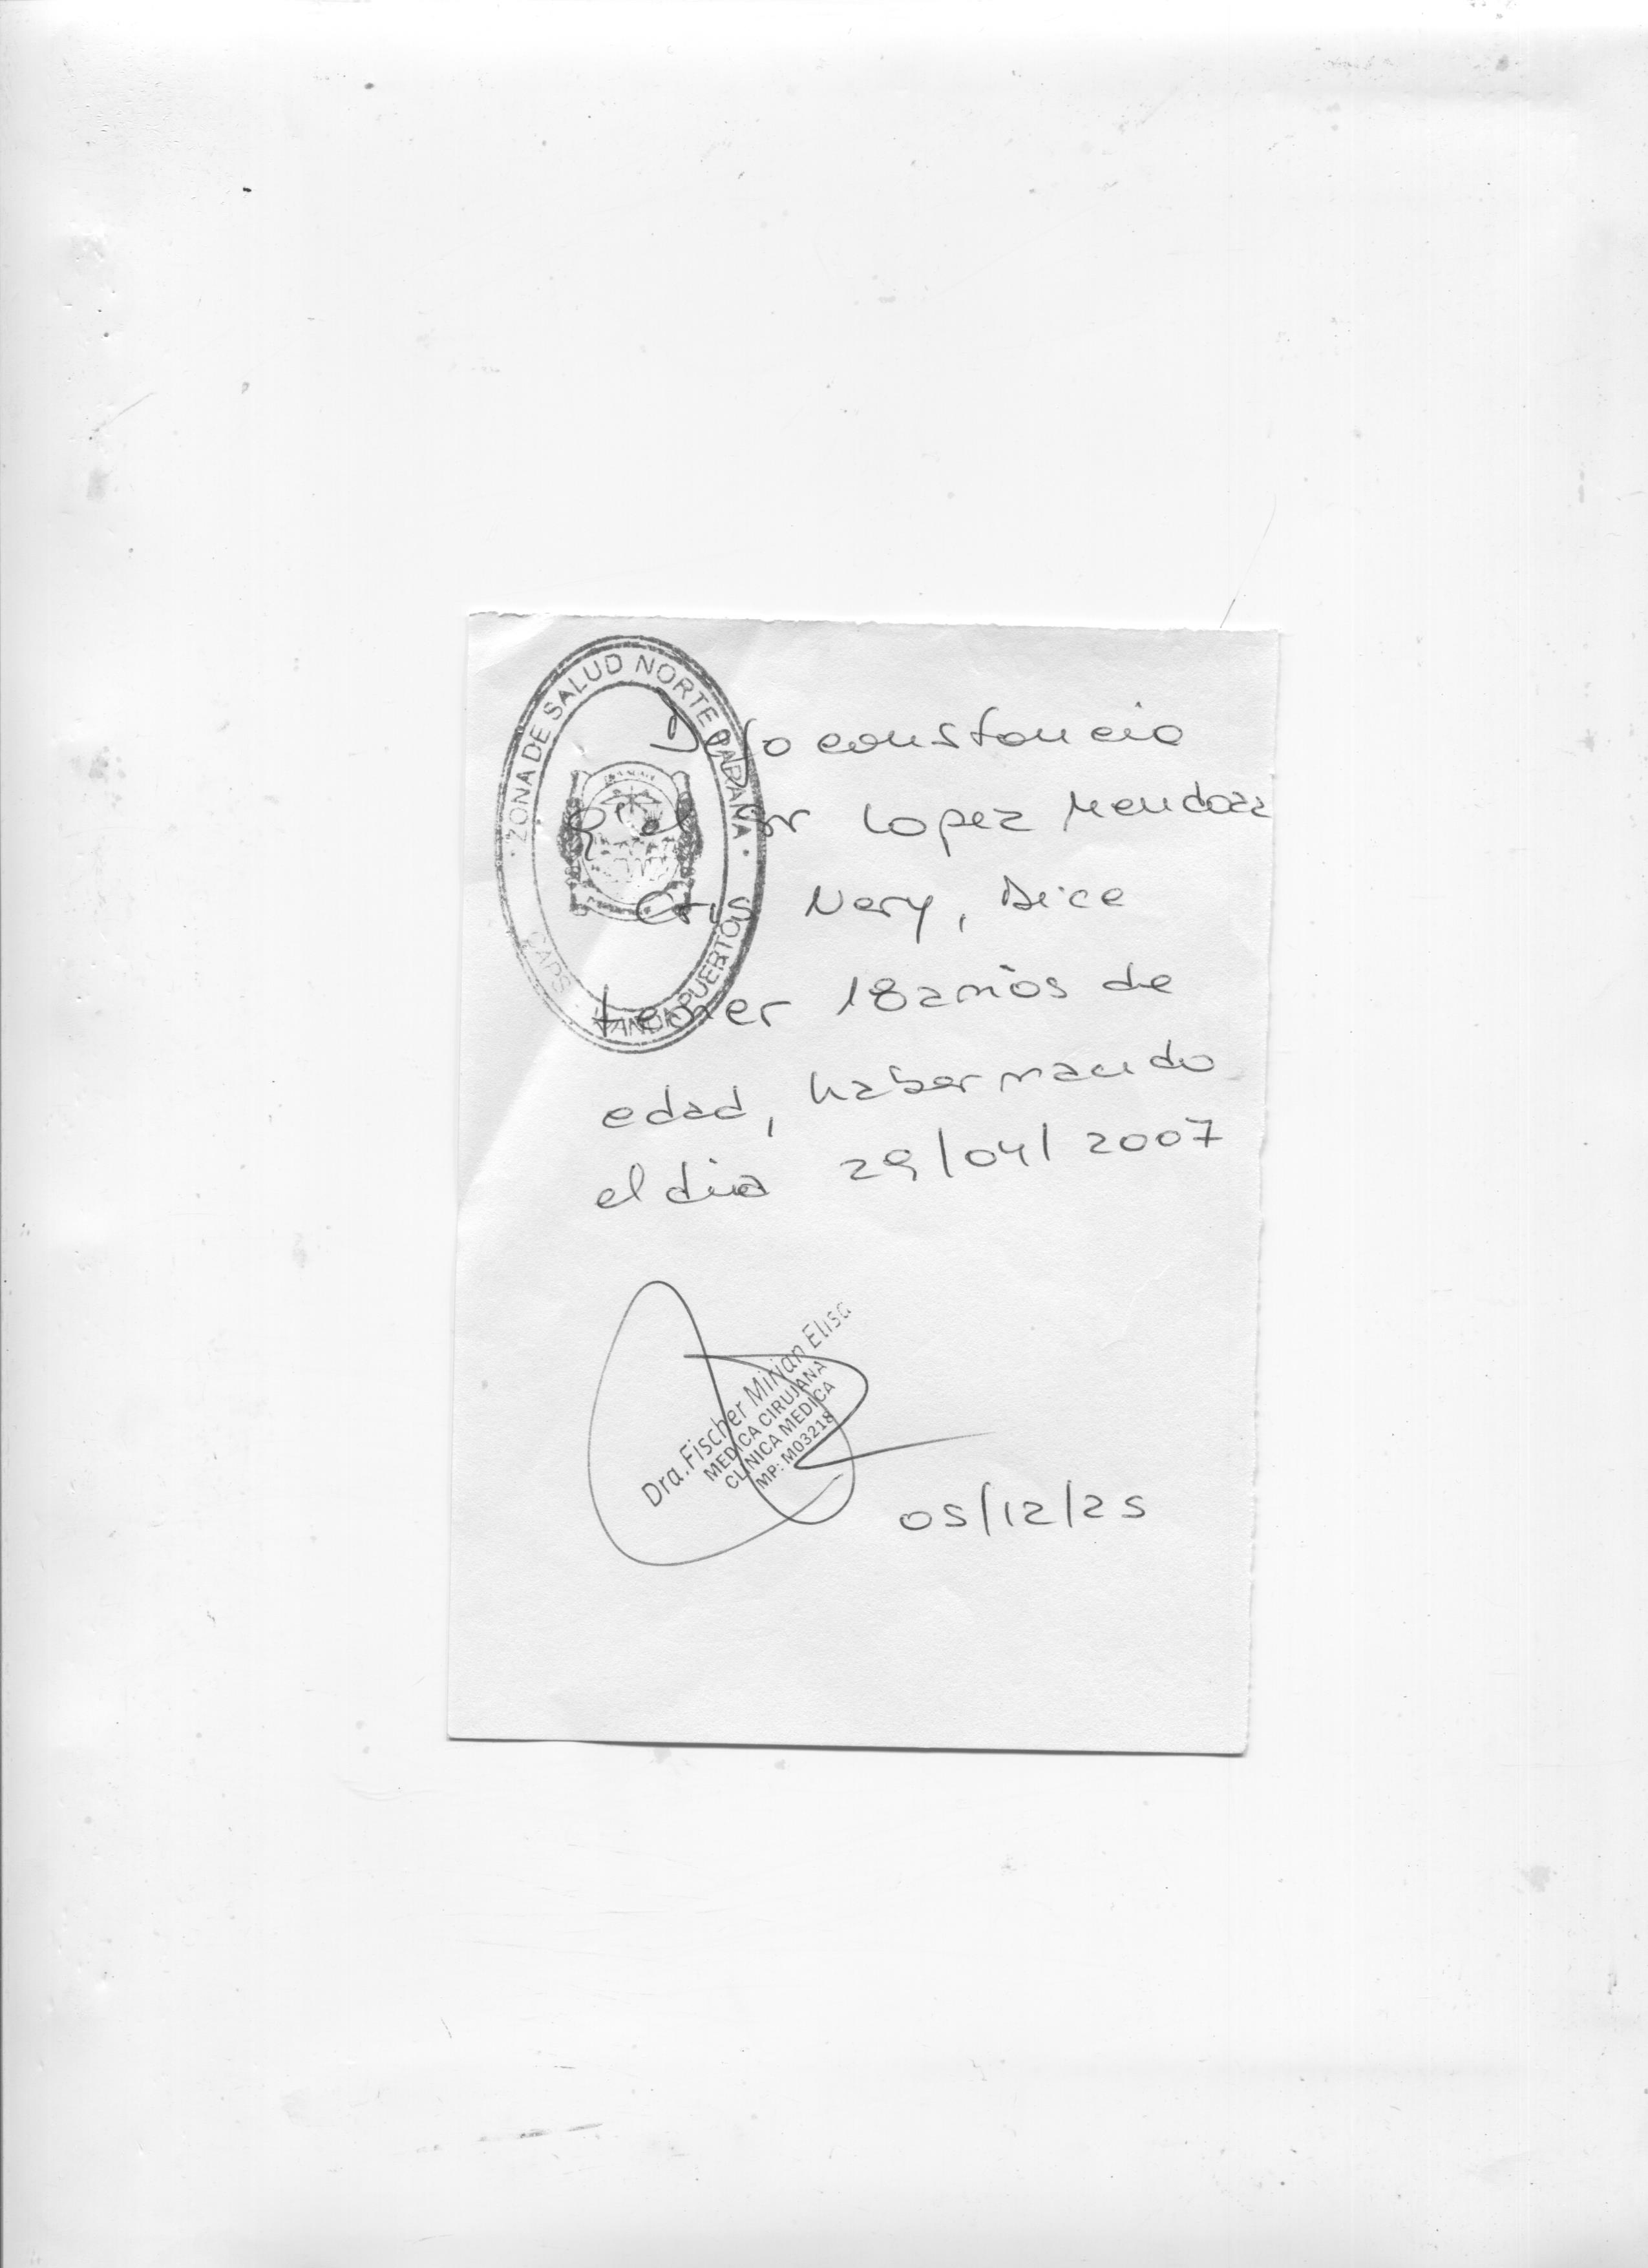 ZONA DE SALUD NORTE PARANA
CAPS
PUERTO
Dejo constancia
q' el Sr Lopez Mendoza
Cris Nery, Dice
tener 18 años de
edad, haber nacido
el dia 29/04/2007
Dra. Fischer Mirian Elisa
MEDICA CIRUJANA
CLINICA MEDICA
MP: M03218
05/12/25